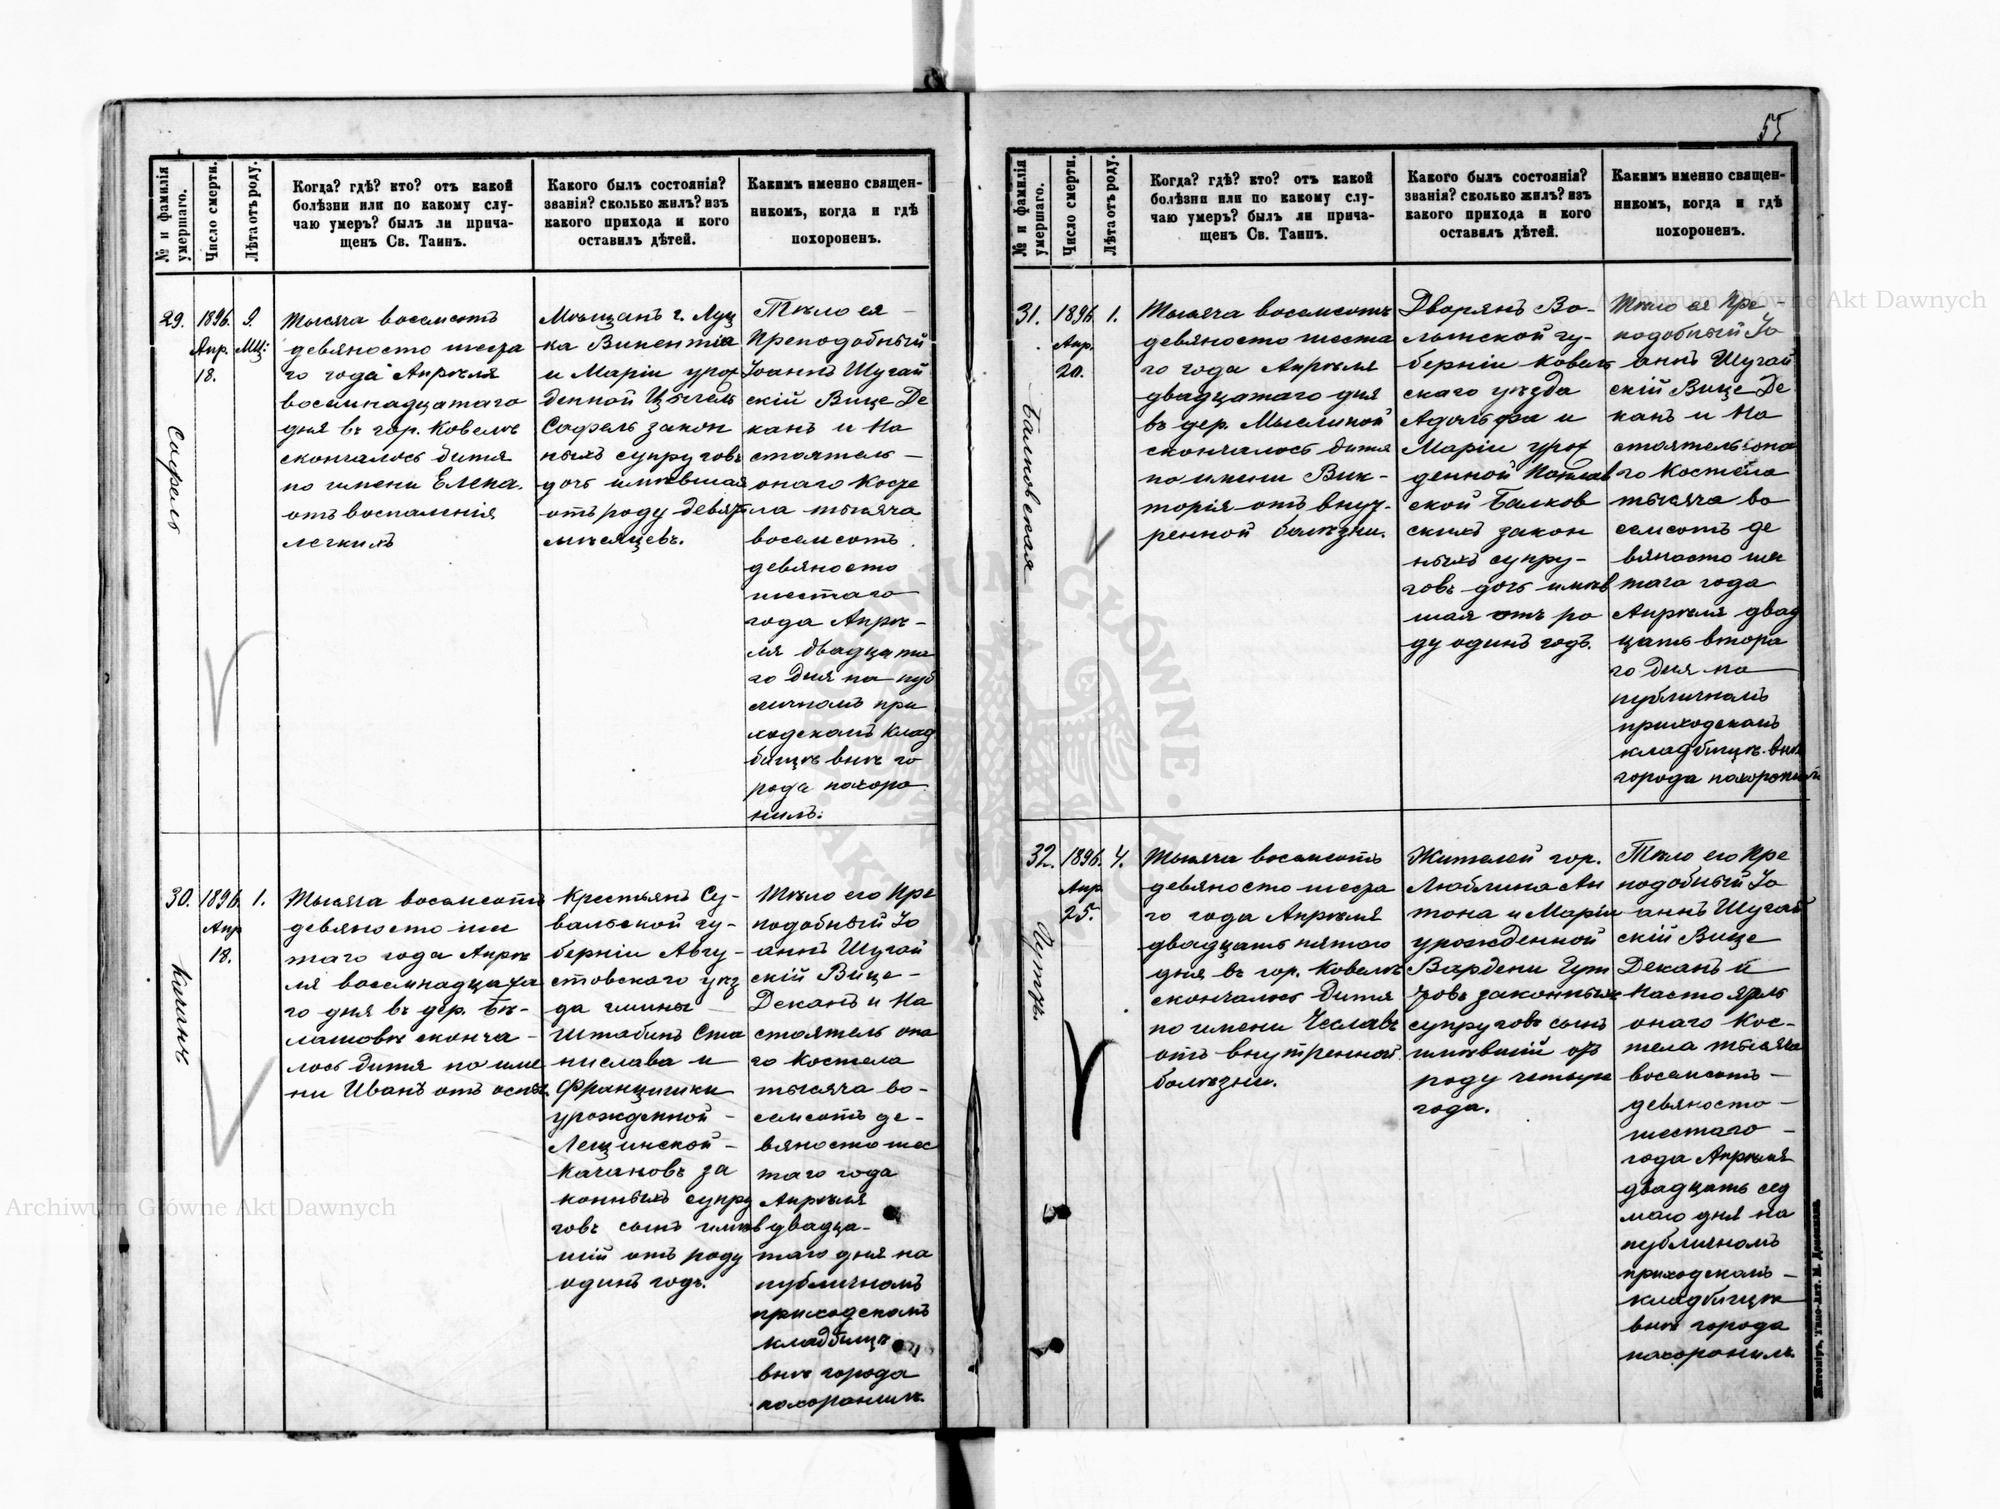 55
№ и фамилія умершаго.
Число смерти.
Лѣта отъ роду.
Когда? гдѣ? кто? отъ какой
болѣзни или по какому слу-
чаю умеръ? былъ ли прича-
щенъ Св. Таинъ.
Какого былъ состоянія?
званія? сколько жилъ? изъ
какого прихода и кого
оставилъ дѣтей.
Какимъ именно священ-
никомъ, когда и гдѣ
похороненъ.
29.
Софель
1896
Апр.
18.
9.
мц:
Тысяча восемсотъ
девяносто шеста
го года Апрѣля
восемнадцатаго
дня въ гор. Ковелѣ
скончалось дитя
по имени Елена.
отъ воспаленія
легкихъ
Мѣщанъ г. Луц
ка Викентія
и Маріи урож
денной
Софель закон
ныхъ супруговъ
дочь имѣвшая
отъ роду девять
мѣсяцевъ.
Тѣло ея –
Преподобный
Іоаннъ Шугай
скій Вице Де
канъ и На
стоятель –
онаго Косте
ла тысяча
восемсотъ
девяносто
шестаго
года Апрѣ–
ля двадцата
го дня на пуб
личномъ при
ходскомъ клад
бищѣ внѣ го
рода похоро
нилъ.
30.
1896
Апр
18.
1.
Тысяча восемсотъ
девяносто шес
таго года Апрѣ
ля восемнадцата
го дня въ дер. Бѣ-
лашовѣ сконча-
лось дитя по име
ни Иванъ отъ оспы.
Крестьянъ Су-
вальской гу-
берніи Авгу-
стовскаго уѣз
да гмины
Штабинъ Ста
нислава и
Францишки
урожденной –
Лещинской –
Качановъ за
конныхъ супру
говъ сынъ имѣв
шій отъ роду
одинъ годъ.
Тѣло его Пре
подобный Іо
аннъ Шугай
скій Вице –
Деканъ и На
стоятель она
го Костела
тысяча во-
семсотъ де-
вяносто шес
таго года
Апрѣля
двадца-
таго дня на
публичномъ
приходскомъ
кладбищѣ
внѣ города
похоронилъ.
№ и фамилія умершаго.
Число смерти.
Лѣта отъ роду.
Когда? гдѣ? кто? отъ какой
болѣзни или по какому слу-
чаю умеръ? былъ ли прича-
щенъ Св. Таинъ.
Какого былъ состоянія?
званія? сколько жилъ? изъ
какого прихода и кого
оставилъ дѣтей.
Какимъ именно священ-
никомъ, когда и гдѣ
похороненъ.
31.
Балковская
1896
Апр.
20.
1.
Тысяча восемсотъ
девяносто шеста
го года Апрѣля
двадцатаго дня
въ дер. Мыслиной
скончалось дитя
по имени Вик-
торія отъ внут-
ренной болѣзни.
Дворянъ Во-
лынской гу-
берніи Ковель
скаго уѣзда
Адольфа и
Маріи урож
денной
ской Балков
скихъ закон
ныхъ супру-
говъ дочь имѣв
шая отъ ро
ду одинъ годъ.
Тѣло ея Пре –
подобный Іо
аннъ Шугай
скій Вице Де
канъ и На
стоятель она
го Костела
тысяча во
семсотъ де
вяносто шес
таго года
Апрѣля двад
цать втора
го дня на
публичномъ
приходскомъ
кладбищѣ внѣ
города похоронилъ
32.
Гутръ.
1896.
Апр
25.
4.
Тысяча восемсотъ
девяносто шеста
го года Апрѣля
двадцать пятаго
дня въ гор. Ковелѣ
скончалось дитя
по имени Чеславъ
отъ внутренной
болѣзни.
Жителей гор.
Люблина Ан
тона и Маріи
урожденной
Вардени Гут
ровъ законныхъ
супруговъ сынъ
имѣвшій отъ
роду четыре
года.
Тѣло его Пре
подобный Іо
аннъ Шугай
скій Вице
Деканъ и
Настоятель
онаго Кос-
тела тысяча
восемсотъ –
девяносто –
шестаго –
года Апрѣля
двадцать сед
маго дня на
публичномъ
приходскомъ –
кладбищѣ
внѣ города
похоронилъ.
Житоміръ, Типо-Лит. М. Дененмана.
Archiwum Główne Akt Dawnych
Archiwum Główne Akt Dawnych